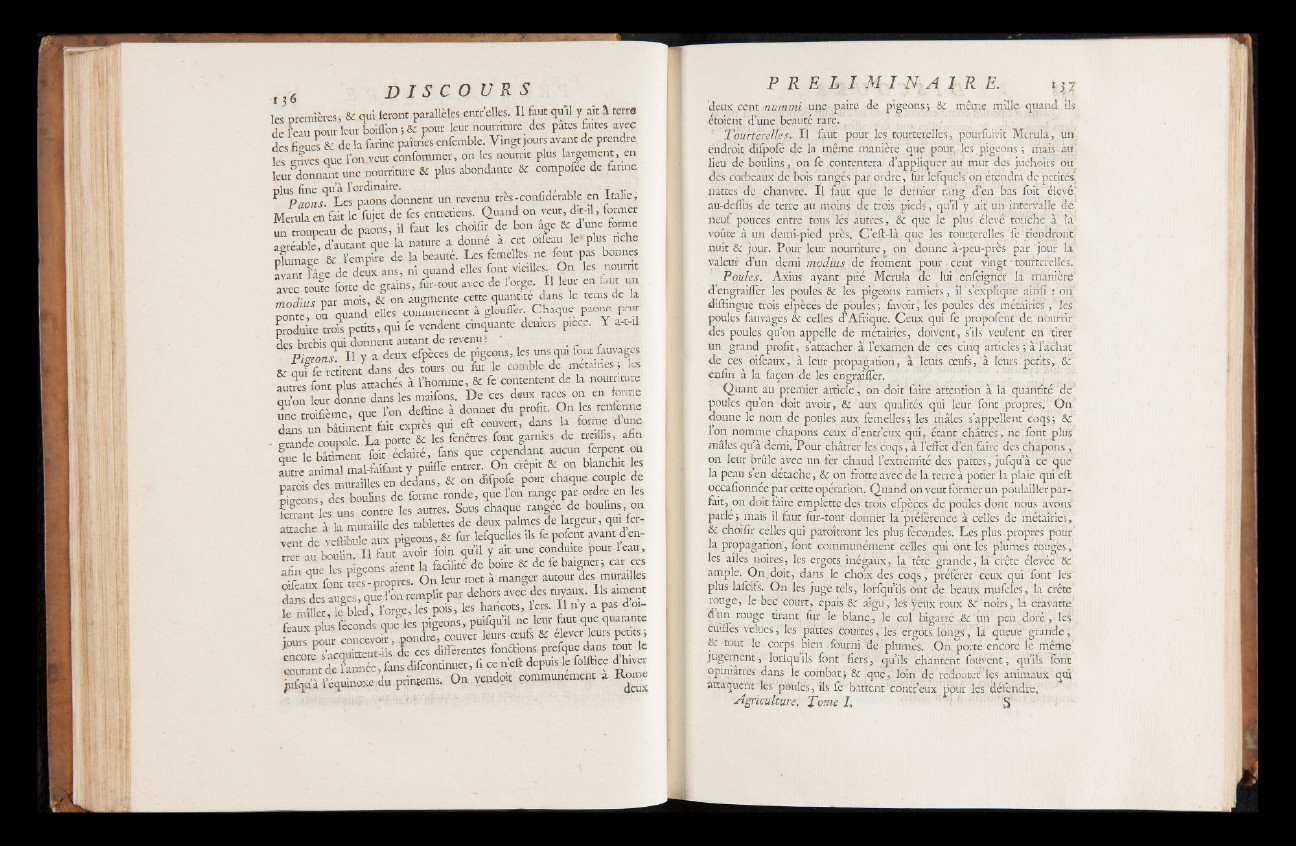 136 DISCOURS
les premières, & qui seront parallèles entr'elles. Il faut qu'il y ait à terre
de l'eau pour leur boisson ; & pour leur nourriture des pâtes faites avec
des figues & de la farine paîtries ensemble. Vingt jours avant de prendre
les grives que l'on veut consommer, on les nourrit plus largement, en
leur donnant une nourriture & plus abondante & composée de farine
plus fine qu'à l'ordinaire.
Paons. Les paons donnent un revenu très-considérable en Italie,
Merula en fait le sujet de ses entretiens. Quand on veut, dit-il, former
un troupeau de paons, il faut les choisir de bon âge & d'une forme
agréable, d'autant que la nature a donné à cet oiseau le plus riche
plumage & l'empire de la beauté. Les femelles ne sont pas bonnes
avant l'âge de deux ans, ni quand elles sont vieilles. On les nourrit
avec toute sorte de grains, sur-tout avec de l'orge. Il leur en faut un
modius par mois, & on augmente cette quantité dans le tems de la
ponte, ou quand elles commencent à glousser. Chaque paone peut
produire trois petits, qui se vendent cinquante deniers pièce. Y a-t-il
des brebis qui donnent autant de revenu ?
Pigeons. Il y a deux espèces de pigeons, les uns qui sont sauvages
& qui se retirent dans des tours ou sur le comble de métairies ; les
autres sont plus attachés à l'homme, & se contentent de la nourriture
qu'on leur donne dans les maisons. De ces deux races on en forme
une troisième, que l'on destine à donner du profit. On les renferme
dans un bâtiment fait exprès qui est couvert, dans la forme d'une
grande coupole. La porte & les fenêtres sont garnies de treillis, afin
que le bâtiment soit éclairé, sans que cependant aucun serpent ou
autre animal mal-faisant y puisse entrer. On crépit & on blanchit les
parois des murailles en dedans, & on dispose pour chaque couple de
pigeons, des boulins de forme ronde, que l'on range par ordre en les
serrant les uns contre les autres. Sous chaque rangée de boulins, on
attache à la muraille des tablettes de deux palmes de largeur, qui ser-
vent de vestibule aux pigeons, & sur lesquelles ils se posent avant d'en-
trer au boulin. Il faut avoir soin qu'il y ait une conduite pour l'eau,
afin que les pigeons aient la facilité de boire & de se baigner ; car ces
oiseaux sont très-propres. On leur met à manger autour des murailles
dans des auges, que l'on remplit par dehors avec des tuyaux. Ils aiment
le millet, le bled, l'orge, les pois, les haricots, l'ers. Il n'y a pas d'oi-
seaux plus féconds que les pigeons, puisqu'il ne leur faut que quarante
jours pour concevoir, pondre, couver leurs œufs & élever leurs petits ;
encore s'acquittent-ils de ces différentes fonctions presque dans tout le
courant de l'année, sans discontinuer, si ce n'est depuis le solstice d'hiver
jusqu'à l'équinoxe du printems. On vendoit communément à Rome
deux
PRELIMINAIRE. 137
deux cent nummi une paire de pigeons ; & même mille quand ils
étoient d'une beauté rare.
Tourterelles. Il faut pour les tourterelles, poursuivit Merula, un
endroit disposé de la même manière que pour les pigeons ; mais au
lieu de boulins, on se contentera d'appliquer au mur des juchoirs ou
des corbeaux de bois rangés par ordre, sur lesquels on étendra de petites
nattes de chanvre. Il faut que le dernier rang d'en bas soit élevé
au-dessus de terre au moins de trois pieds, qu'il y ait un intervalle de
neuf pouces entre tous les autres, & que le plus élevé touche à la
voûte à un demi-pied près. C'est-là que les tourterelles se tiendront
nuit & jour. Pour leur nourriture, on donne à-peu-près par jour la
valeur d'un demi modius de froment pour cent vingt tourterelles.
Poules. Axius ayant prié Merula de lui enseigner la manière
d'engraisser les poules & les pigeons ramiers, il s'explique ainsi : on
distingue trois espèces de poules ; savoir, les poules des métairies, les
poules sauvages & celles d'Afrique. Ceux qui se proposent de nourrir
des poules qu'on appelle de métairies, doivent, s'ils veulent en tirer
un grand profit, s'attacher à l'examen de ces cinq articles ; à l'achat
de ces oiseaux, à leur propagation, à leurs œufs, à leurs petits, &
enfin à la façon de les engraisser.
Quant au premier article, on doit faire attention à la quantité de
poules qu'on doit avoir, & aux qualités qui leur sont propres. On
donne le nom de poules aux femelles ; les mâles s'appellent coqs ; &
l'on nomme chapons ceux d'entr'eux qui, étant châtrés, ne sont plus
mâles qu'à demi. Pour châtrer les coqs, à l'effet d'en faire des chapons,
on leur brûle avec un fer chaud l'extrémité des pattes, jusqu'à ce que
la peau s'en détache, & on frotte avec de la terre à potier la plaie qui est
occasionnée par cette opération. Quand on veut former un poulailler par-
fait, on doit faire emplette des trois espèces de poules dont nous avons
parlé ; mais il faut sur-tout donner la préférence à celles de métairies,
& choisir celles qui paroîtront les plus fécondes. Les plus propres pour
la propagation, sont communément celles qui ont les plumes rouges,
les ailes noires, les ergots inégaux, la tête grande, la crête élevée &
ample. On doit, dans le choix des coqs, préférer ceux qui sont les
plus lascifs. On les juge tels, lorsqu'ils ont de beaux muscles, la crête
rouge, le bec court, épais & aigu, les yeux roux & noirs, la cravatte
d'un rouge tirant sur le blanc, le col bigarré & un peu doré, les
cuisses velues, les pattes courtes, les ergots longs, la queue grande,
& tout le corps bien fourni de plumes. On porte encore le même
jugement, lorsqu'ils sont fiers, qu'ils chantent souvent, qu'ils sont
opiniâtres dans le combat ; & que, loin de redouter les animaux qui
attaquent les poules, ils se battent contr'eux pour les défendre.
Agriculture. Tome I. S